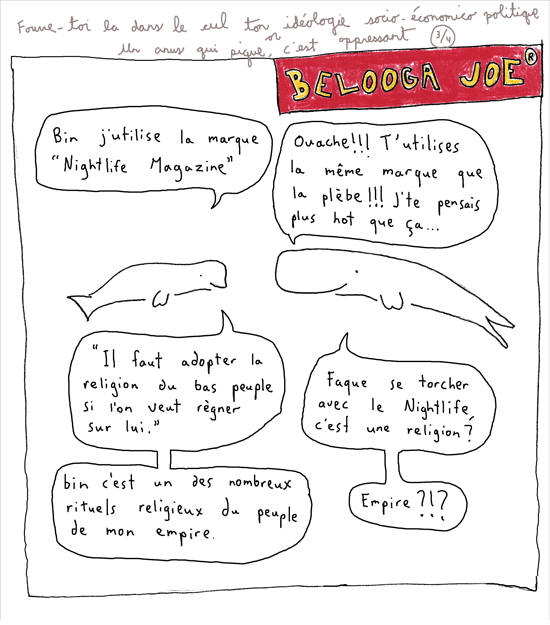 Fourre-toi la dans le cul ton idéologie socio-économico politique
ou
Un anus qui pique, c'est oppressant 3/4
BELOOGA JOE®
Bin j'utilise la marque
"Nightlife Magazine"
Ouache!!! T'utilises
la même marque que
la plèbe!!! J'te pensais
plus hot que ça...
"Il faut adopter la
religion du bas peuple
si l'on veut règner
sur lui."
Faque se torcher
avec le Nightlife,
c'est une religion?
bin c'est un des nombreux
rituels religieux du peuple
de mon empire.
Empire?!?